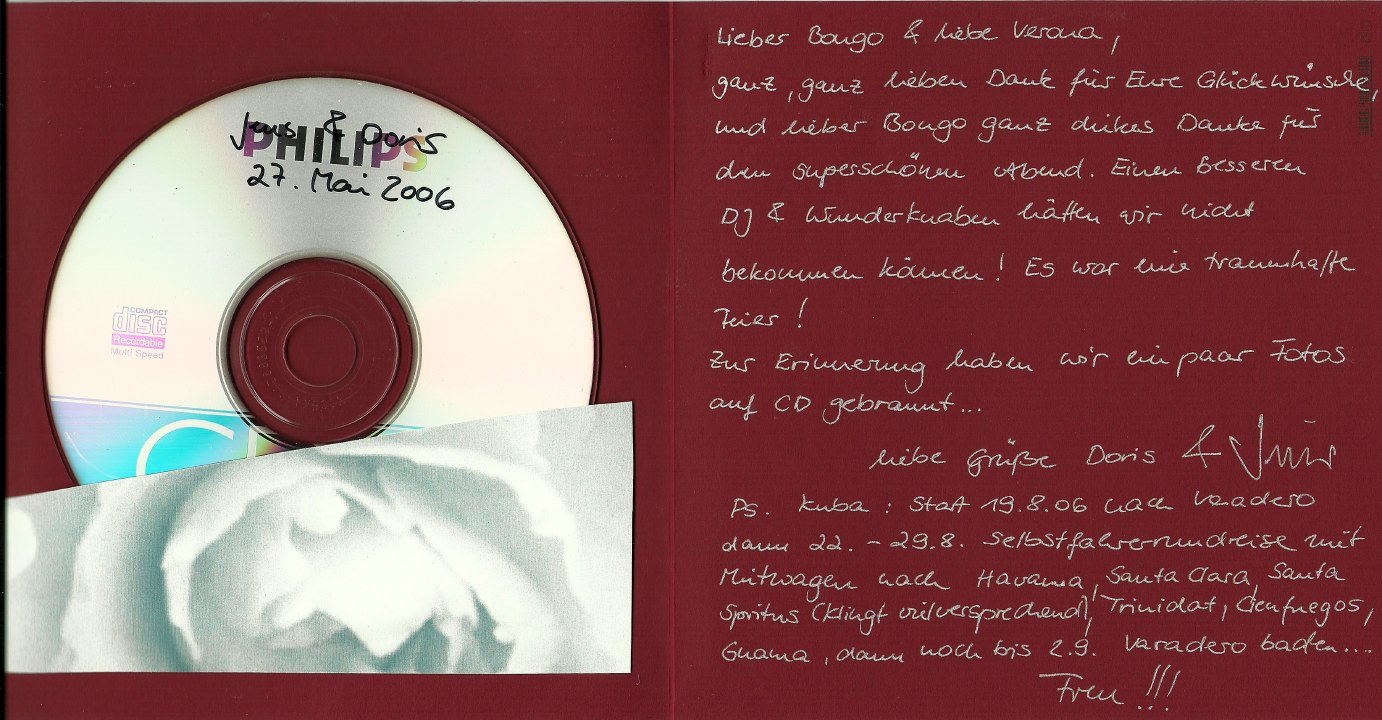 Jens & Doris
PHILIPS
27. Mai 2006
COMPACT
disc
Recordable
Multi Speed
Lieber Bongo & liebe Verona,
ganz, ganz lieben Dank für Eure Glückwünsche,
und lieber Bongo ganz dickes Danke für
den superschönen Abend. Einen besseren
DJ & Wunderknaben hätten wir nicht
bekommen können! Es war eine traumhafte
Feier!
Zur Erinnerung haben wir ein paar Fotos
auf CD gebrannt...
liebe Grüße Doris & Jens
Ps. Kuba: Start 19.8.06 nach Varadero
dann 22. - 29.8. Selbstfahrerrundreise mit
Mietwagen nach Havanna, Santa Clara, Santa
Spiritus (klingt vielversprechend), Trinidat, Cienfuegos,
Guama, dann noch bis 2.9. Varadero baden...
Freu!!!